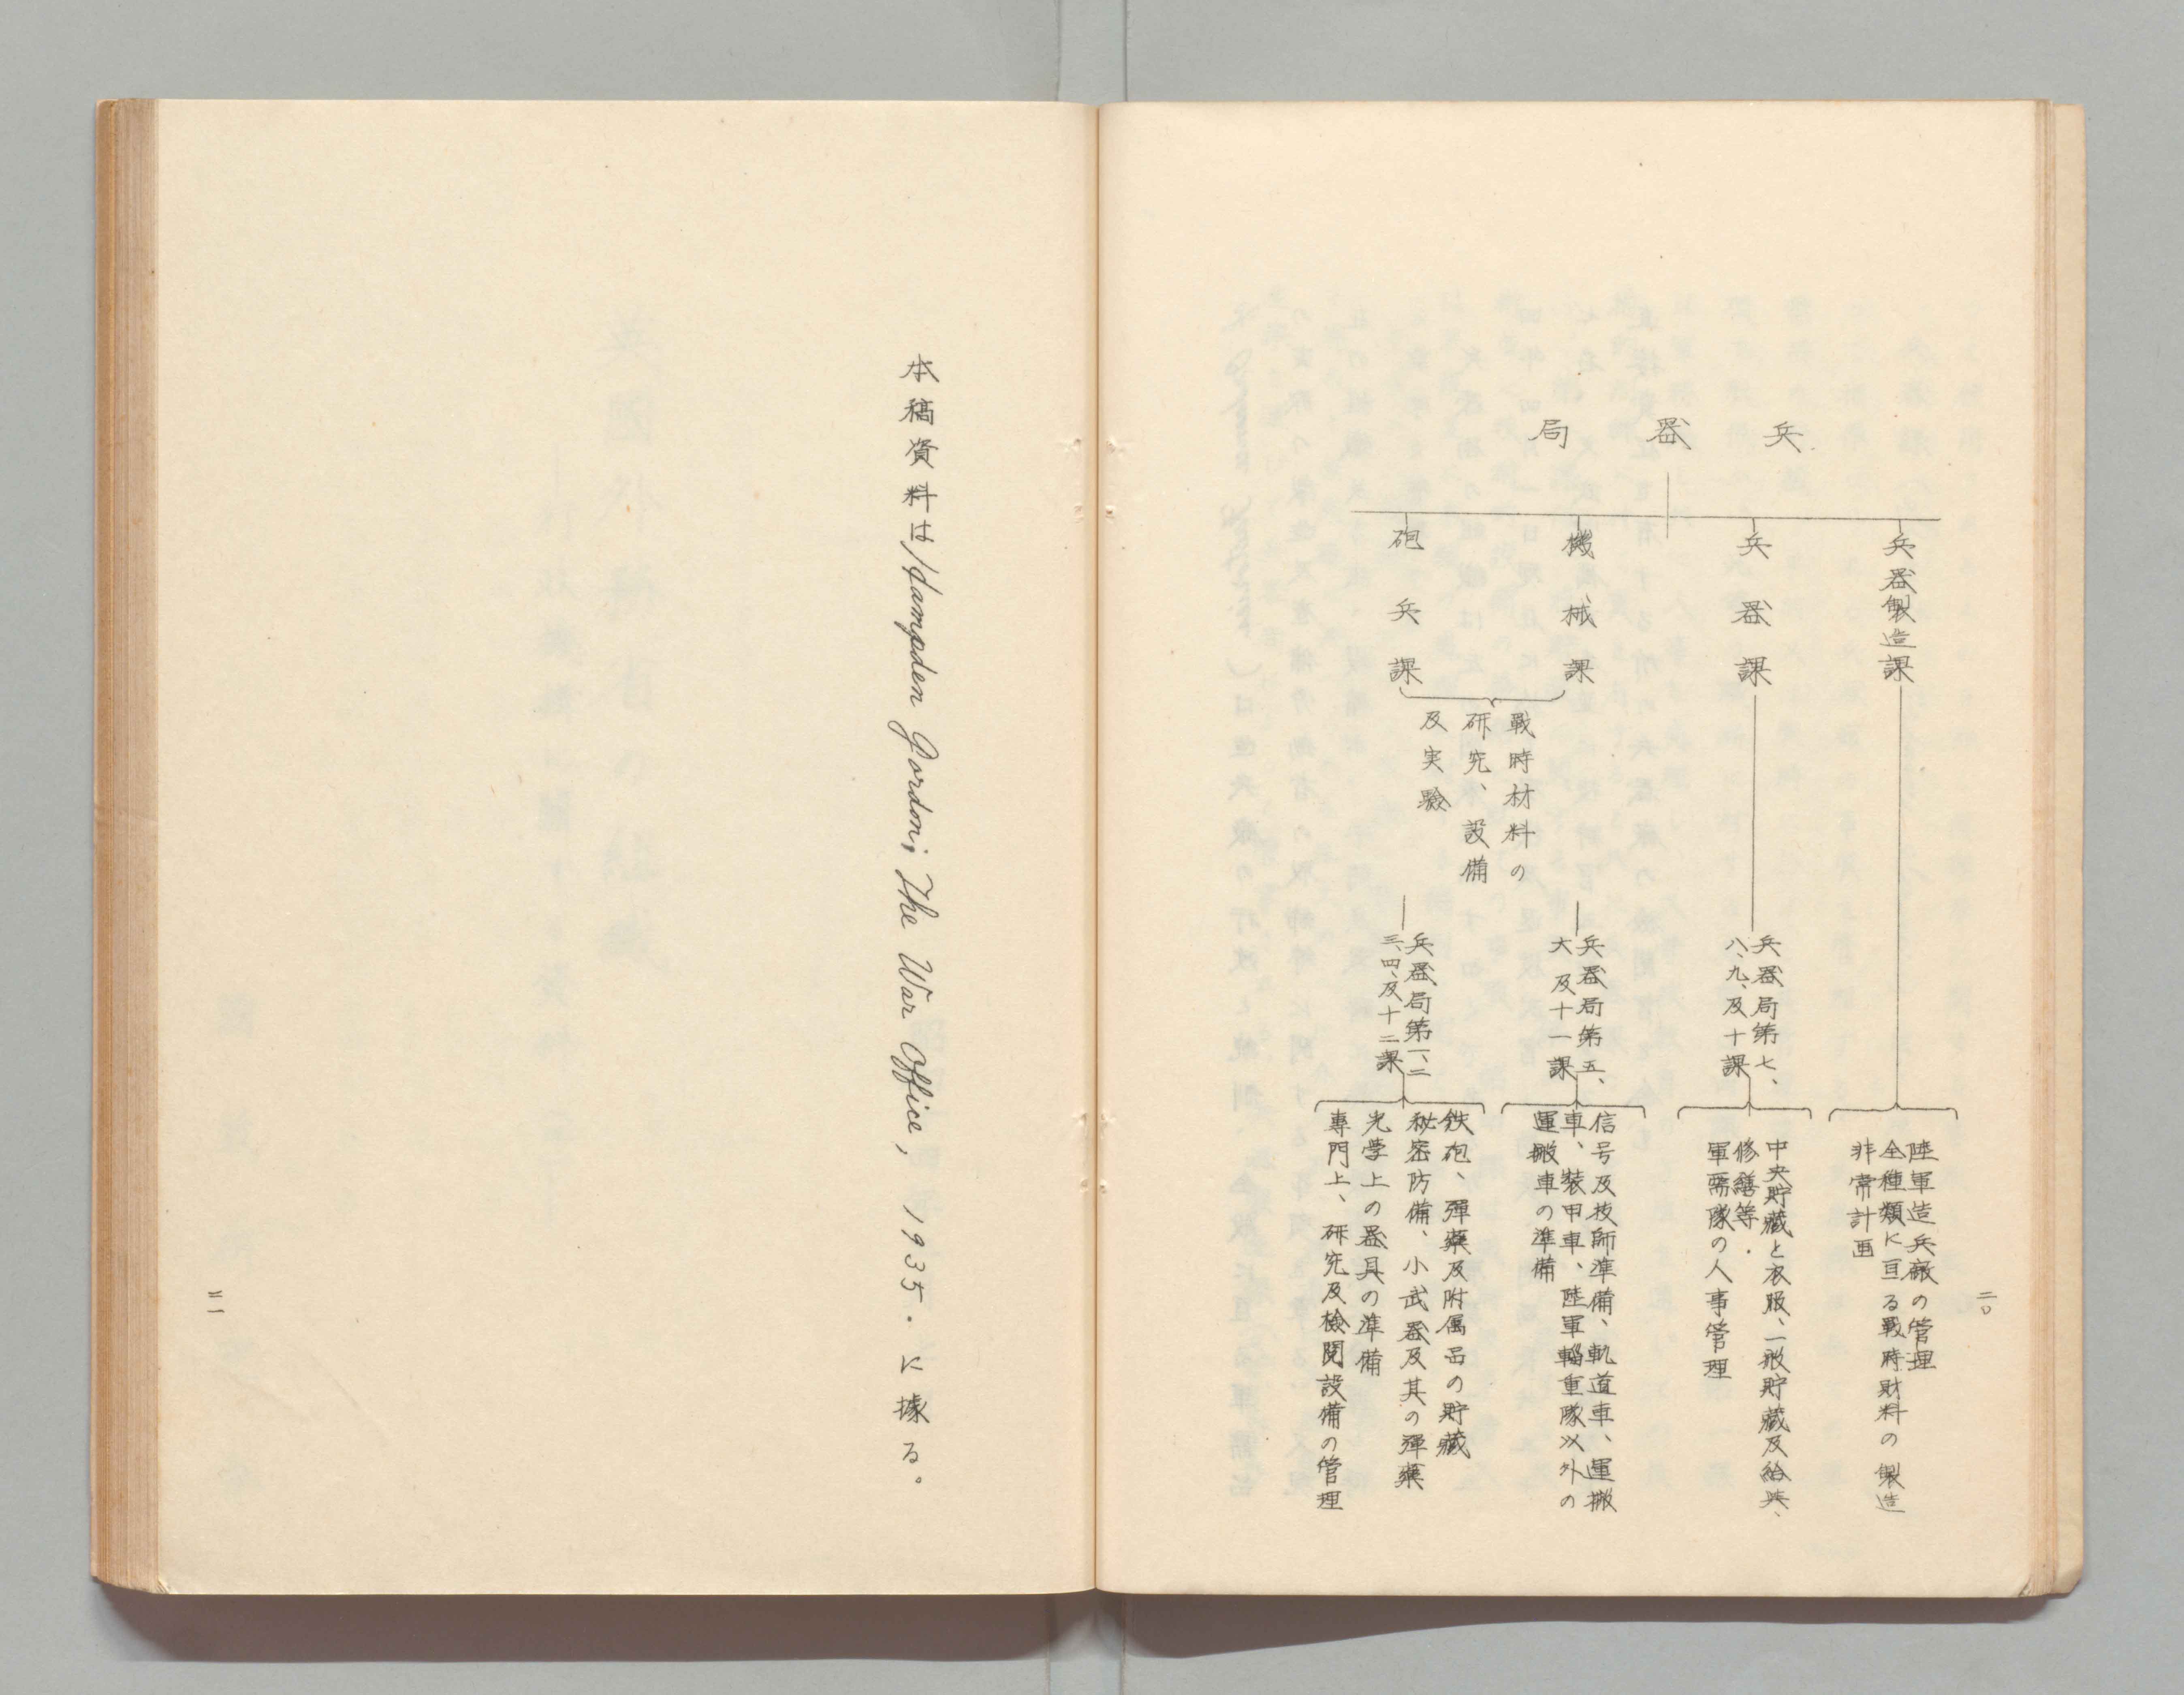 二〇
兵器局
兵器製造課
陸軍造兵廠の管理
全種類に亘る戰時財料の製造
非常計画
兵器課
兵器局第七、
八、九、及十課
中央貯藏と衣服、一般貯藏及給與、
修繕等
軍需隊の人事管理
機械課
砲兵課
戰時材料の
研究、設備
及実驗
兵器局第五、
六及十一課
信号及技師準備、軌道車、運搬
車、装甲車、陸軍輜重隊以外の
運搬車の準備
兵器局第一、二
三、四、及十二課
鉄砲、彈藥及附属品の貯藏
秘密防備、小武器及其の彈藥
光学上の器具の準備
專門上、研究及檢閲設備の管理
本稿資料はHampden Gordon; The War Office, 1935. に據る。
二一